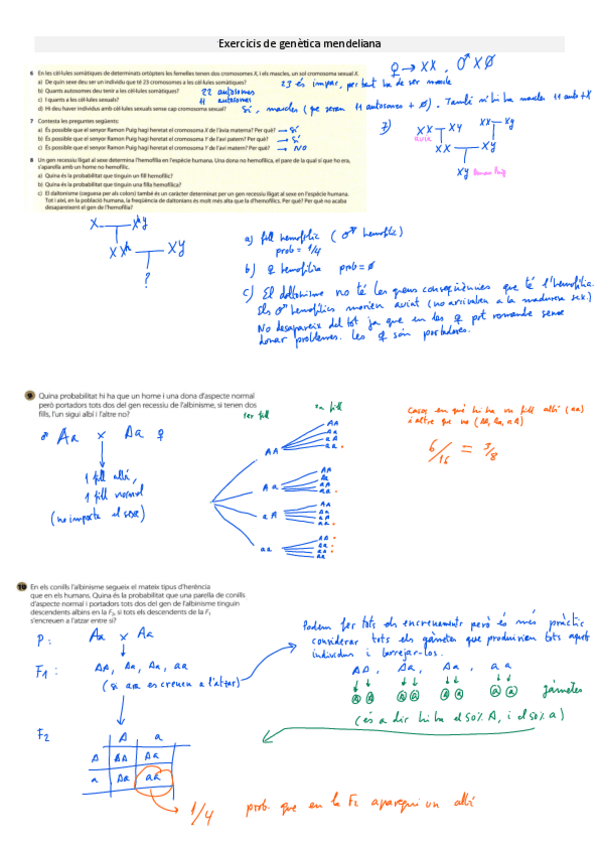 Exercicis de genètica mendeliana
6 En les cèl·lules somàtiques de determinats ortòpters les femelles tenen dos cromosomes X, i els mascles, un sol cromosoma sexual X.
♀ → XX , ♂ XØ
a) De quin sexe deu ser un individu que té 23 cromosomes a les cèl·lules somàtiques? 23 és impar, per tant ha de ser mascle
b) Quants autosomes deu tenir a les cèl·lules somàtiques? 22 autosomes
c) I quants a les cèl·lules sexuals? 11 autosomes
d) Hi deu haver individus amb cèl·lules sexuals sense cap cromosoma sexual? Sí, mascles (que seran 11 autosomes + Ø). També n'hi ha mascles 11 auto+X
7 Contesta les preguntes següents:
a) És possible que el senyor Ramon Puig hagi heretat el cromosoma X de l'àvia materna? Per què? → Sí
b) És possible que el senyor Ramon Puig hagi heretat el cromosoma Y de l'avi patern? Per què? → Sí
c) És possible que el senyor Ramon Puig hagi heretat el cromosoma Y de l'avi matern? Per què? → NO
7)
XX XY XX XY
àvia
XX XY
XY Ramon Puig
8 Un gen recessiu lligat al sexe determina l'hemofília en l'espècie humana. Una dona no hemofílica, el pare de la qual sí que ho era, s'aparella amb un home no hemofílic.
a) Quina és la probabilitat que tinguin un fill hemofílic?
b) Quina és la probabilitat que tinguin una filla hemofílica?
c) El daltonisme (ceguesa per als colors) també és un caràcter determinat per un gen recessiu lligat al sexe en l'espècie humana.
Tot i així, en la població humana, la freqüència de daltonians és molt més alta que la d'hemofílics. Per què? Per què no acaba
desapareixent el gen de l'hemofília?
X XhY
XXh XY
?
a) fill hemofílic (♂ hemofílic)
prob = 1/4
b) ♀ hemofílica prob = Ø
c) El daltonisme no té les greus conseqüències que té l'hemofília.
Els ♂ hemofílics morien aviat (no arribaven a la maduresa sex.)
No desapareix del tot ja que en les ♀ pot romandre sense
donar problemes. Les ♀ són portadores.
9 Quina probabilitat hi ha que un home i una dona d'aspecte normal
però portadors tots dos del gen recessiu de l'albinisme, si tenen dos
fills, l'un sigui albí i l'altre no?
♂ Aa x Aa ♀
1 fill albí,
1 fill normal
(no importa el sexe)
1er fill
2n fill
AA
AA
Aa
aA
aa
Aa
AA
Aa
aA
aa
aA
AA
Aa
aA
aa
aa
AA
Aa
aA
aa
Casos en què hi ha un fill albí (aa)
i altre que no (AA, Aa, aA)
6/16 = 3/8
10 En els conills l'albinisme segueix el mateix tipus d'herència
que en els humans. Quina és la probabilitat que una parella de conills
d'aspecte normal i portadors tots dos del gen de l'albinisme tinguin
descendents albins en la F2, si tots els descendents de la F1
s'encreuen a l'atzar entre si?
P: Aa x Aa
F1: AA, Aa, Aa, aa
(si ara es creuen a l'atzar)
Podem fer tots els encreuaments però és més pràctic
considerar tots els gàmetes que produirien tots aquests
individus i barrejar-los.
AA, Aa, Aa, aa
A A A a A a a a gàmetes
(és a dir hi ha el 50% A, i el 50% a)
F2
A a
A AA Aa
a Aa aa
1/4 prob. que en la F2 aparegui un albí